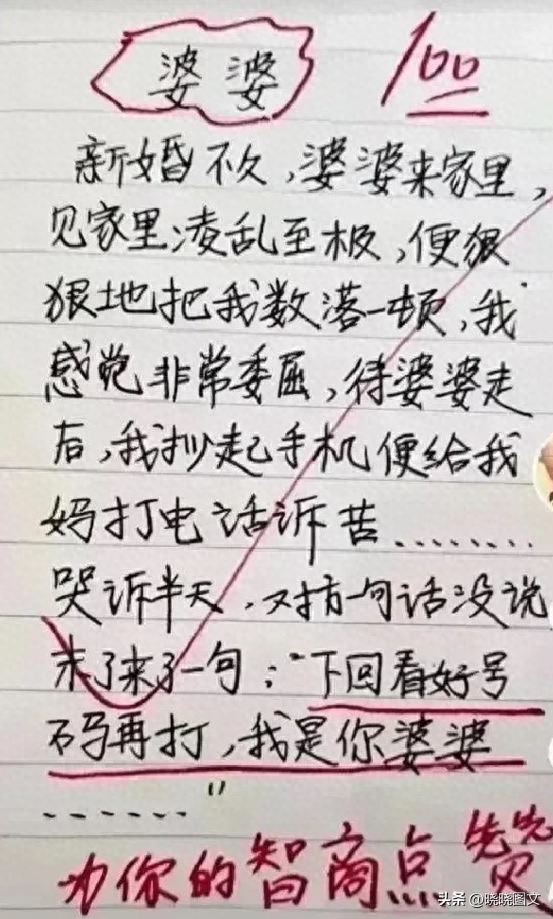 婆婆
100
新婚不久,婆婆来家里,
见家里凌乱至极,便狠
狠地把我数落一顿,我
感觉非常委屈,待婆婆走
后,我抄起手机便给我
妈打电话诉苦………
哭诉半天,对方一句话没说
末了来了一句:“下回看好号
码再打,我是你婆婆
……”
为你的智商点赞
头条 @晓晓图文